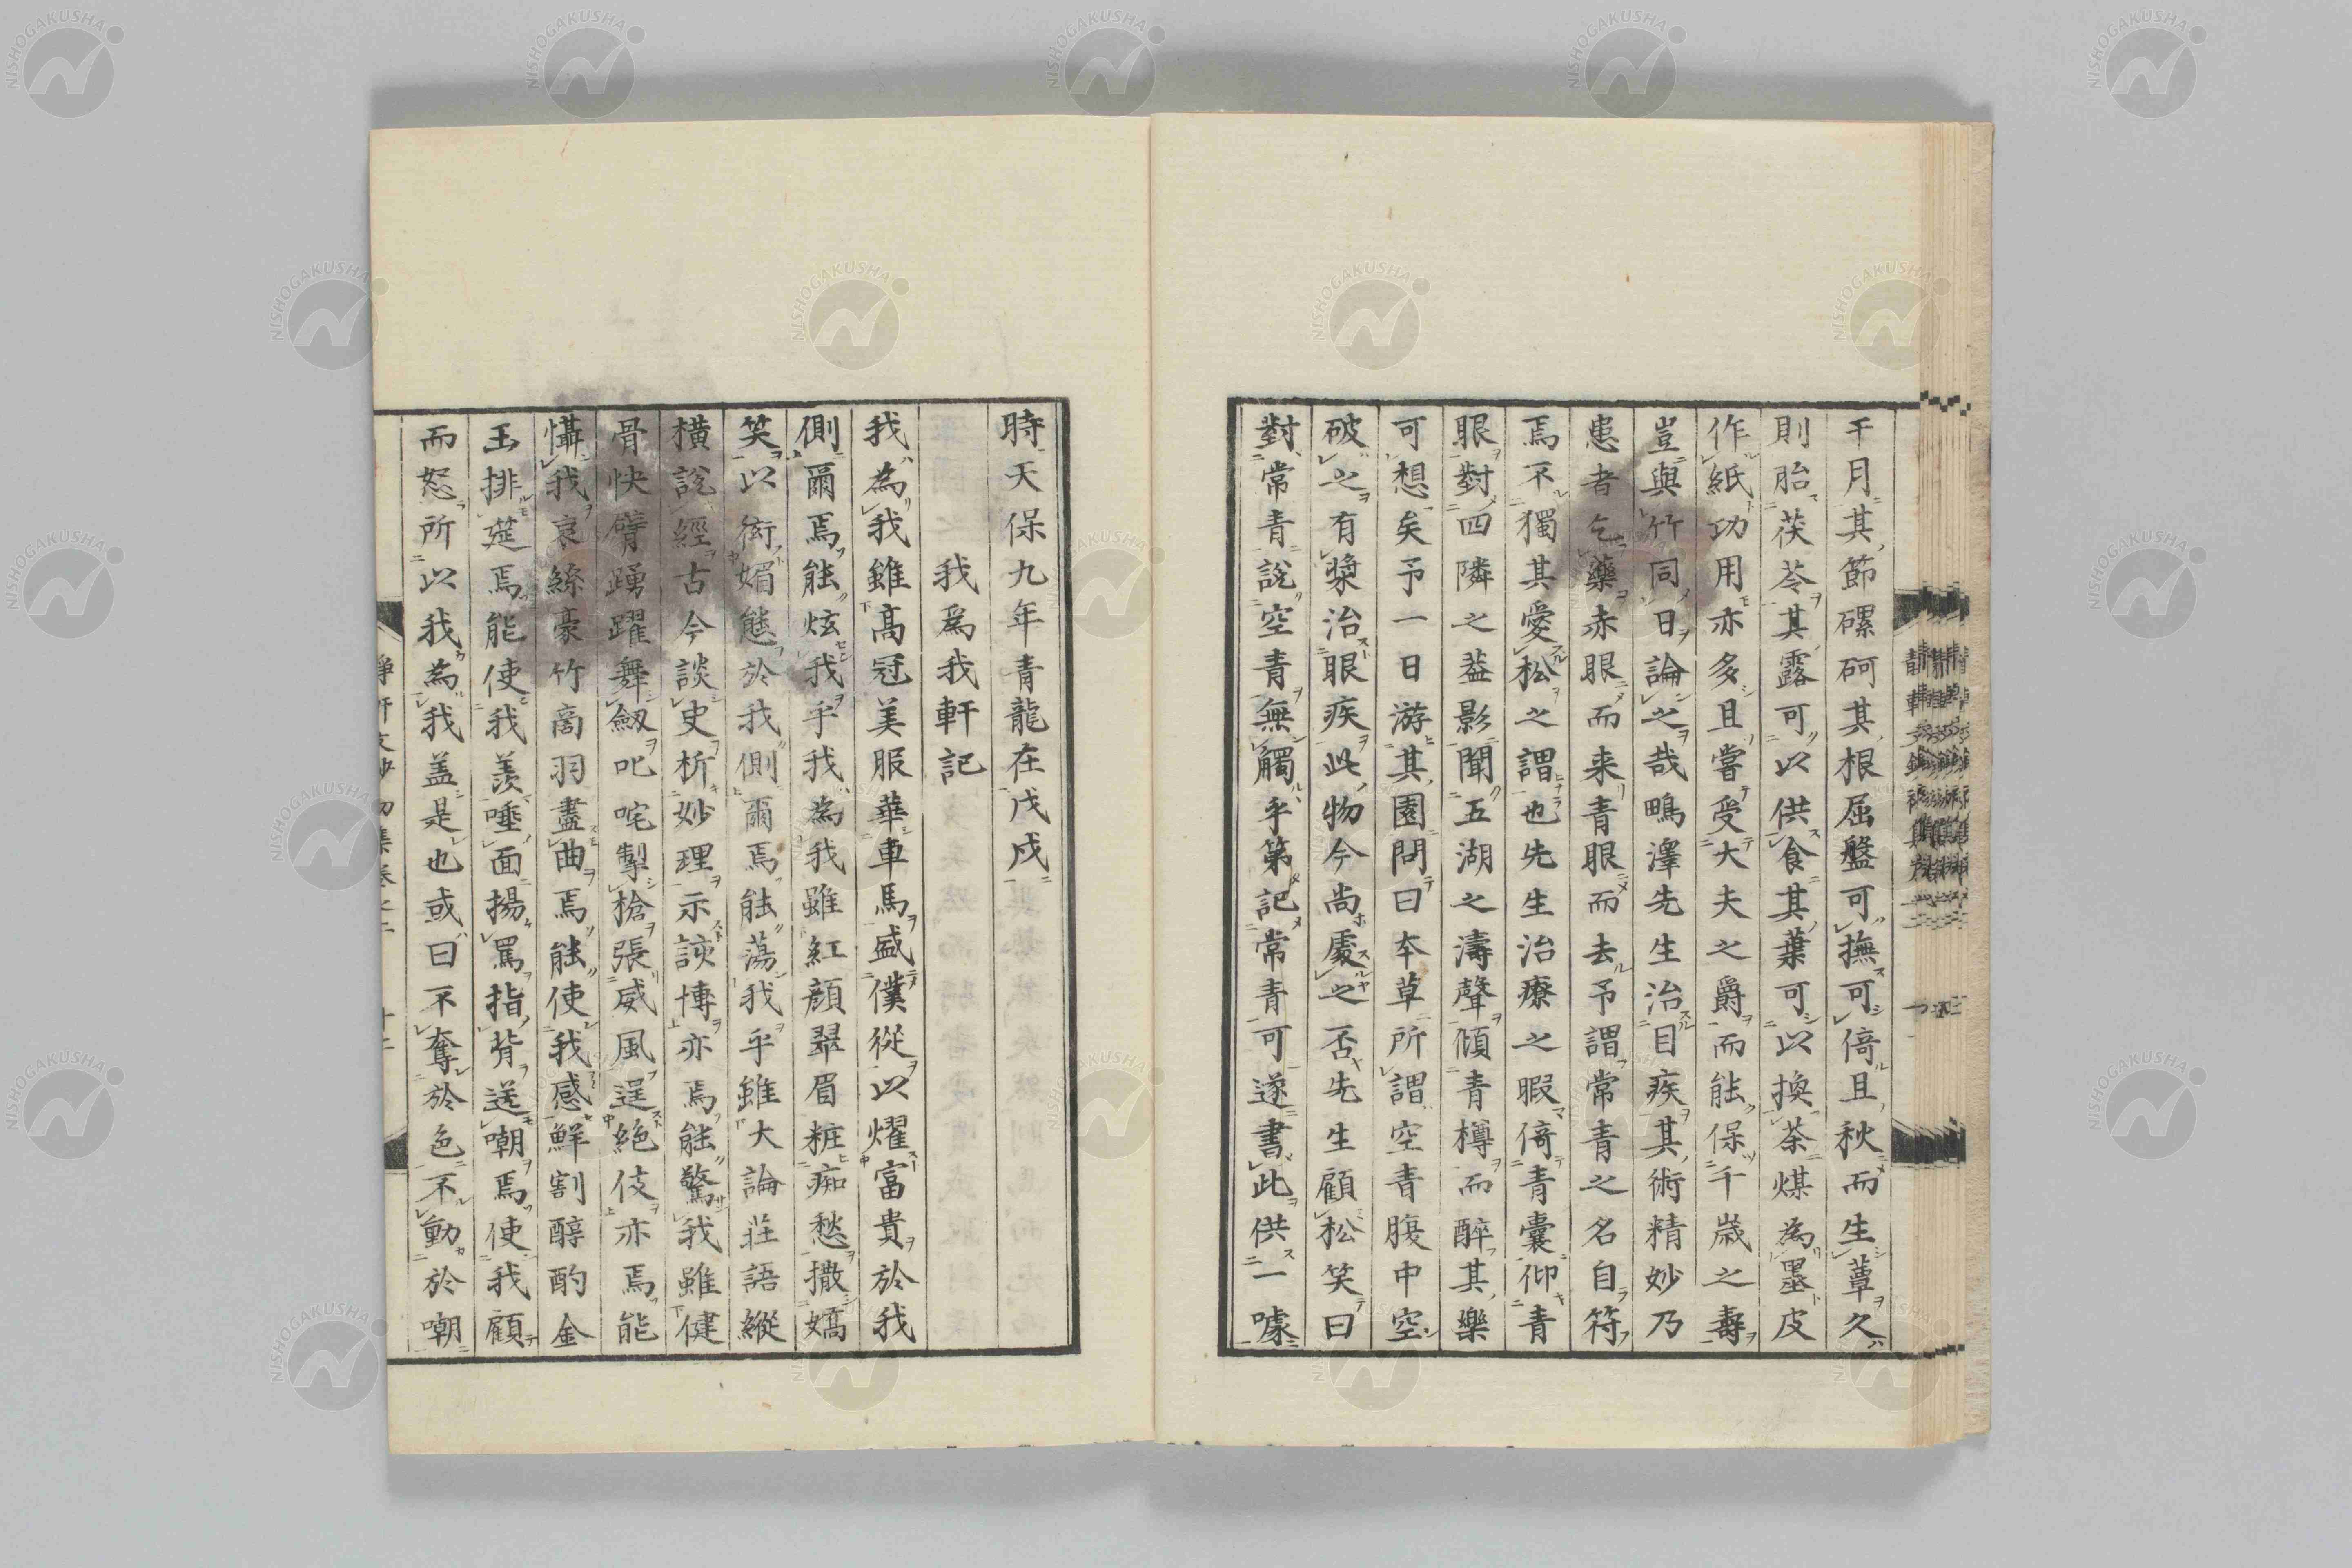 干月其節磥砢其根屈盤可撫可倚且秋而生蕈久
則胎茯苓其露可以供食其葉可以換茶煤為墨皮
作紙功用亦多且嘗受大夫之爵而能保千歲之壽
豈與竹同日論之哉鴫澤先生治目疾其術精妙乃
患者乞藥赤眼而来青眼而去予謂常青之名自符
焉不獨其愛松之謂也先生治療之暇倚青囊仰青
眼對四隣之葢影聞五湖之濤聲傾青樽而醉其樂
可想矣予一日游其園問曰本草所謂空青腹中空
破之有漿治眼疾此物今尚處之否先生顧松笑曰
對常青說空青無觸乎第記常青可遂書此供一噱
時天保九年青龍在戊戌
我爲我軒記
我為我雖高冠美服華車馬盛僕從以燿富貴於我
側爾焉能炫我乎我為我雖紅顔翠眉粧痴愁撒嬌
笑以衒媚態於我側爾焉能蕩我乎雖大論莊語縱
橫說經古今談史析妙理示談博亦焉能驚我雖健
骨快臂踴躍舞劔叱咤掣槍張威風逞絶伎亦焉能
懾我哀絲豪竹啇羽盡曲焉能使我感鮮割醇酌金
玉排筵焉能使我羨唾面揚罵指背送嘲焉使我顧
而怒所以我為我盖是也或曰不奪於色不動於嘲
NISHOGAKUSHA